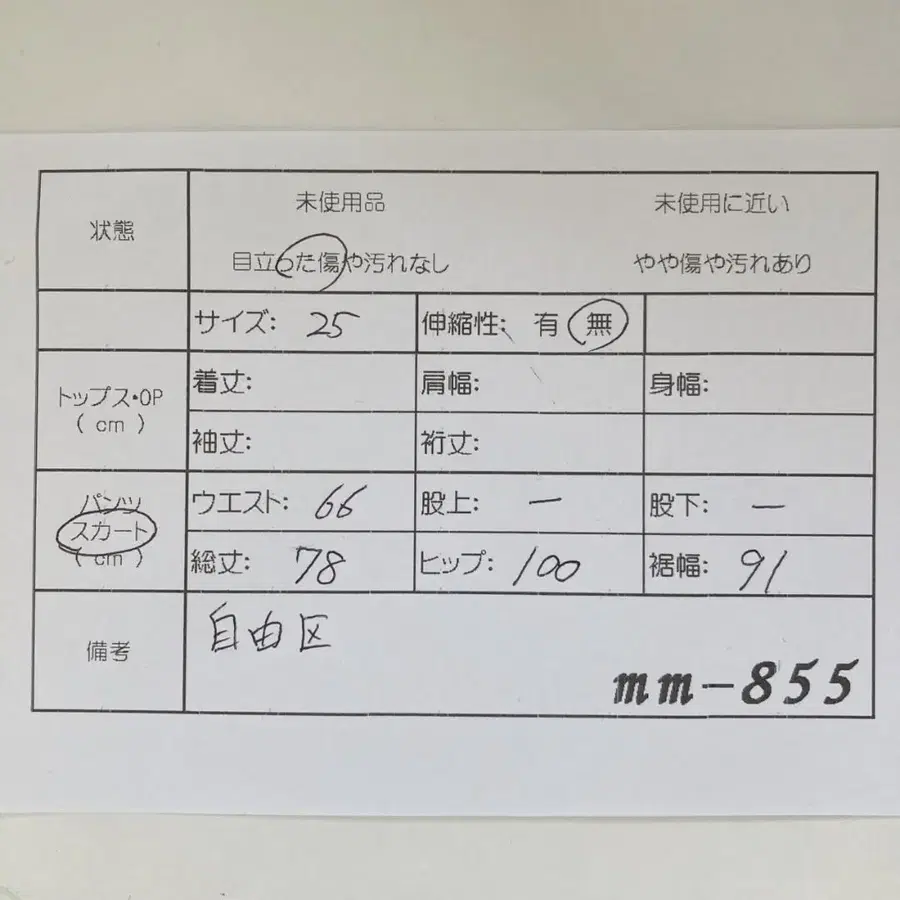 状態
未使用品 未使用に近い
目立った傷や汚れなし やや傷や汚れあり
サイズ: 25 伸縮性: 有 無
トップス・OP
( cm )
着丈: 肩幅: 身幅:
袖丈: 裄丈:
パンツ
スカート
( cm )
ウエスト: 66 股上: ー 股下: ー
総丈: 78 ヒップ: 100 裾幅: 91
備考
自由区
mm-855